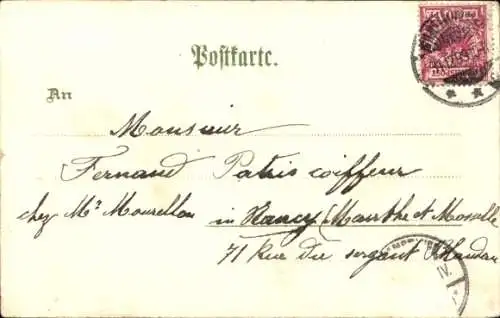 Postkarte.
An
Monsieur
Fernand Patris coiffeur
chez Mr Mourellon in Nancy (Meurthe et Moselle
71 Rue du sergent Blandan
IV.